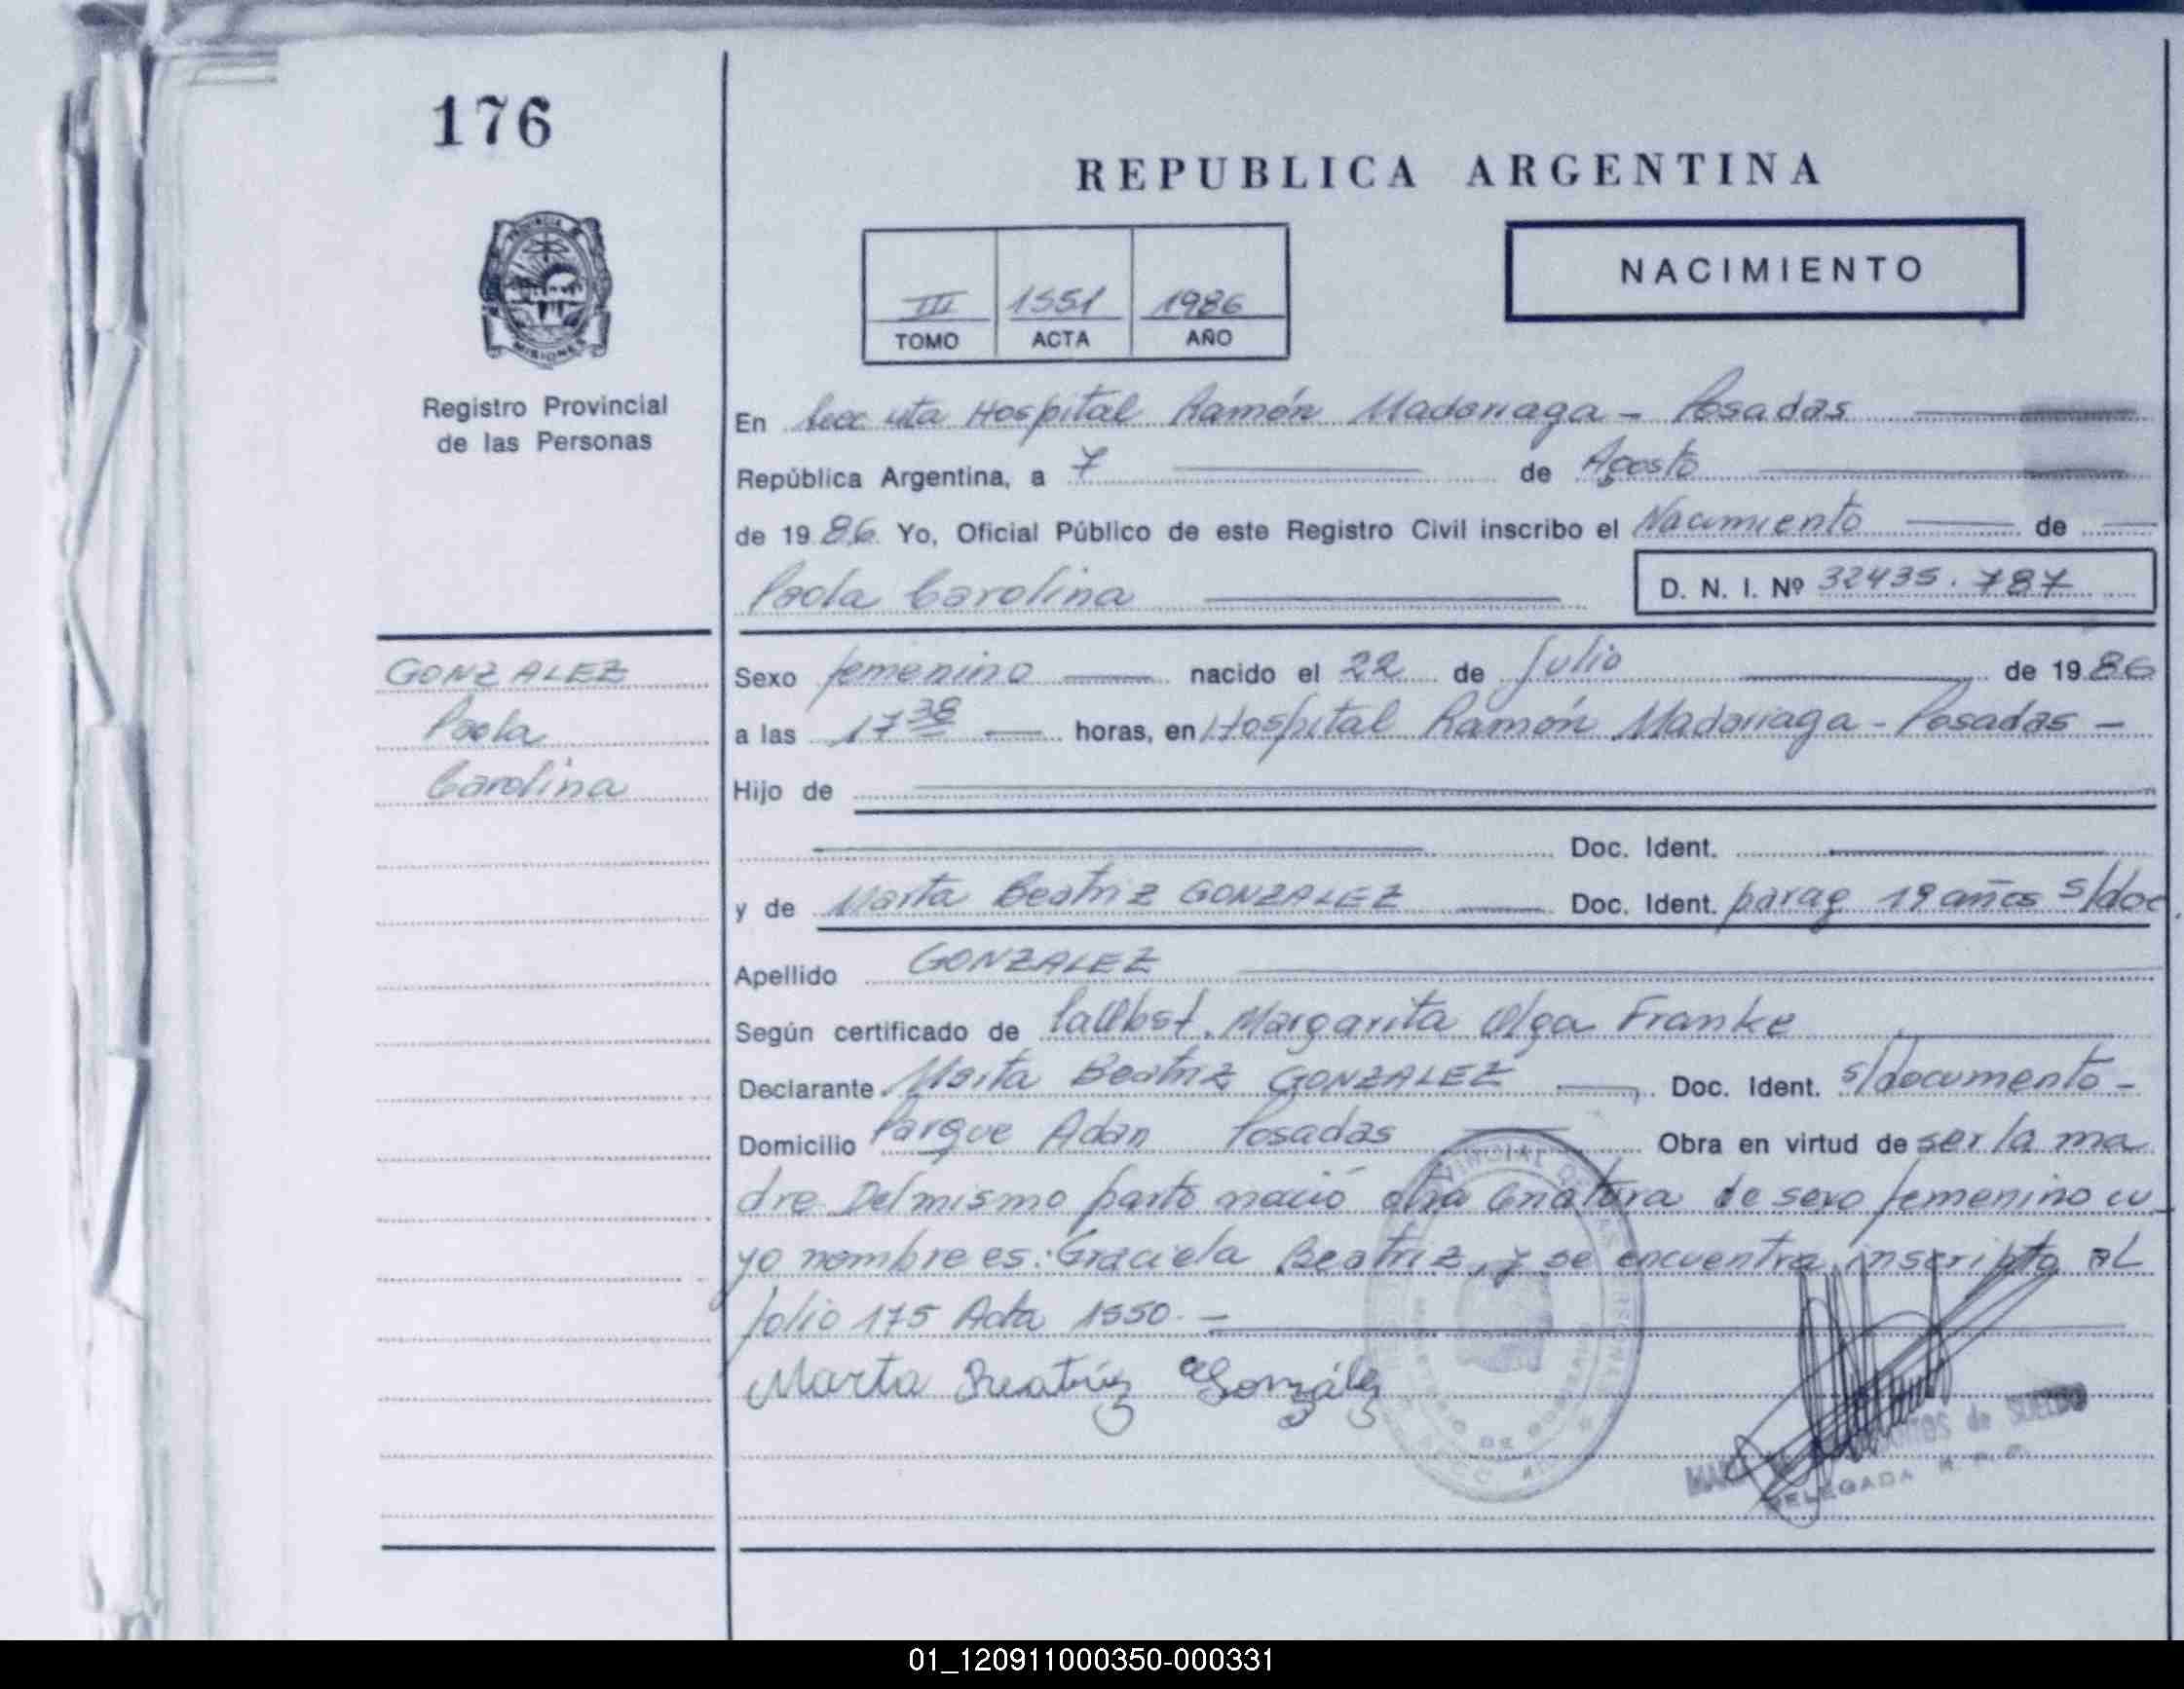 176
REPUBLICA ARGENTINA
PROVINCIA DE
MISIONES
Registro Provincial
de las Personas
III 1551 1986
TOMO ACTA AÑO
NACIMIENTO
En Hospital Ramón Madariaga - Posadas
República Argentina, a 7 de Agosto
de 1986 Yo, Oficial Público de este Registro Civil inscribo el Nacimiento de
Paola Carolina
D. N. I. Nº 32435.787
GONZALEZ
Paola
Carolina
Sexo femenino nacido el 22 de Julio de 1986
a las 17 38 horas, en Hospital Ramón Madariaga - Posadas -
Hijo de
Doc. Ident.
y de Marta Beatriz GONZALEZ Doc. Ident. parag 19 años s/doc.
Apellido GONZALEZ
Según certificado de la Obst. Margarita Olga Franke
Declarante Marta Beatriz GONZALEZ Doc. Ident. s/documento -
Domicilio Parque Adan Posadas Obra en virtud de ser la ma
dre Del mismo parto nació otra Criatura de sexo femenino cu_
yo nombre es: Graciela Beatriz, y se encuentra inscripto al
folio 175 Acta 1550. -
Marta Beatríz González
de SUELDO
DELEGADA
01_120911000350-000331